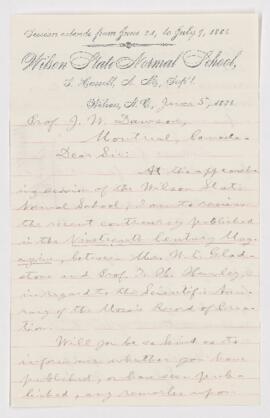 Session extends from June 21, to July 9, 1886
Wilson State Normal School,
S. Hassell, A. M., Sup't.
Wilson, N.C., June 5, 1886.
Prof. J. W. Dawson,
Montreal, Canada.
Dear Sir:
At the approach-
ing session of the Wilson State
Normal School, I am to review
the recent controversy published
in the Nineteenth Century Mag-
azine, between Mr. W. E. Glad-
stone and Prof. T. H. Huxley,
in regard to the Scientific Accu-
racy of the Mosaic Record of Crea-
tion.
Will you be so kind as to
inform me whether you have
published, or have seen pub-
lished, any remarks upon